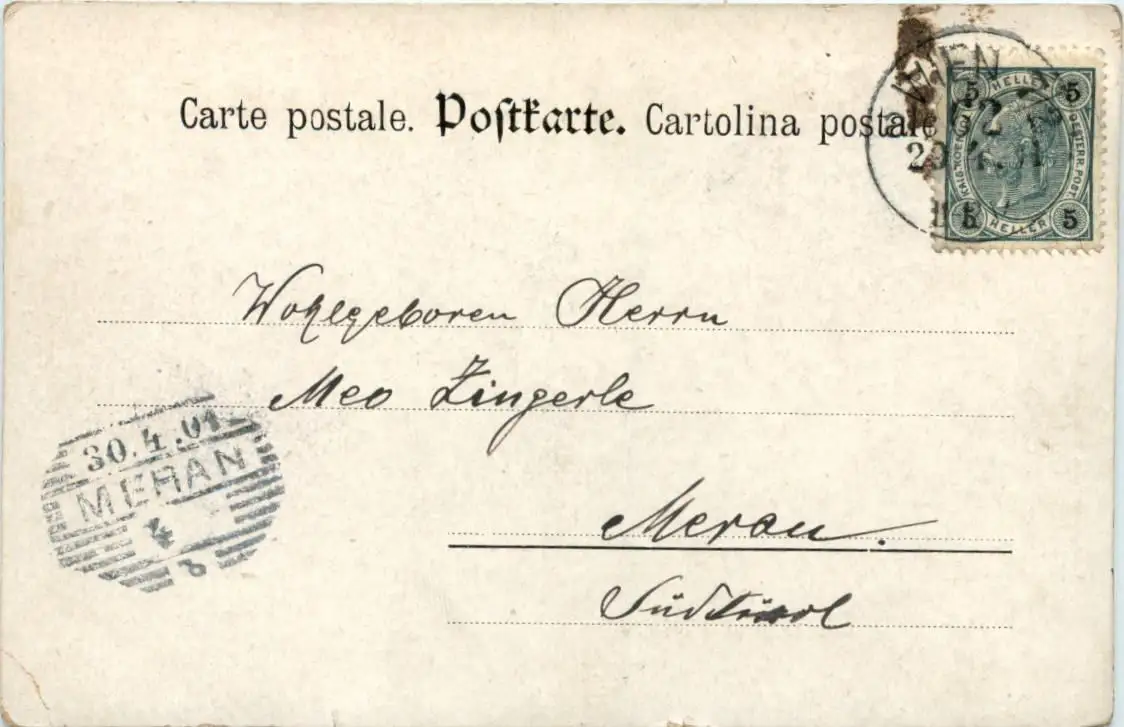 Carte postale. Postkarte. Cartolina postale
WIEN
5 HELLER 5
KAIS. KOEN. OESTERR. POST
5 HELLER 5
Wohlgeboren Herrn
Meo Zingerle
30.4.01
MERAN
4
Meran.
Südtirol